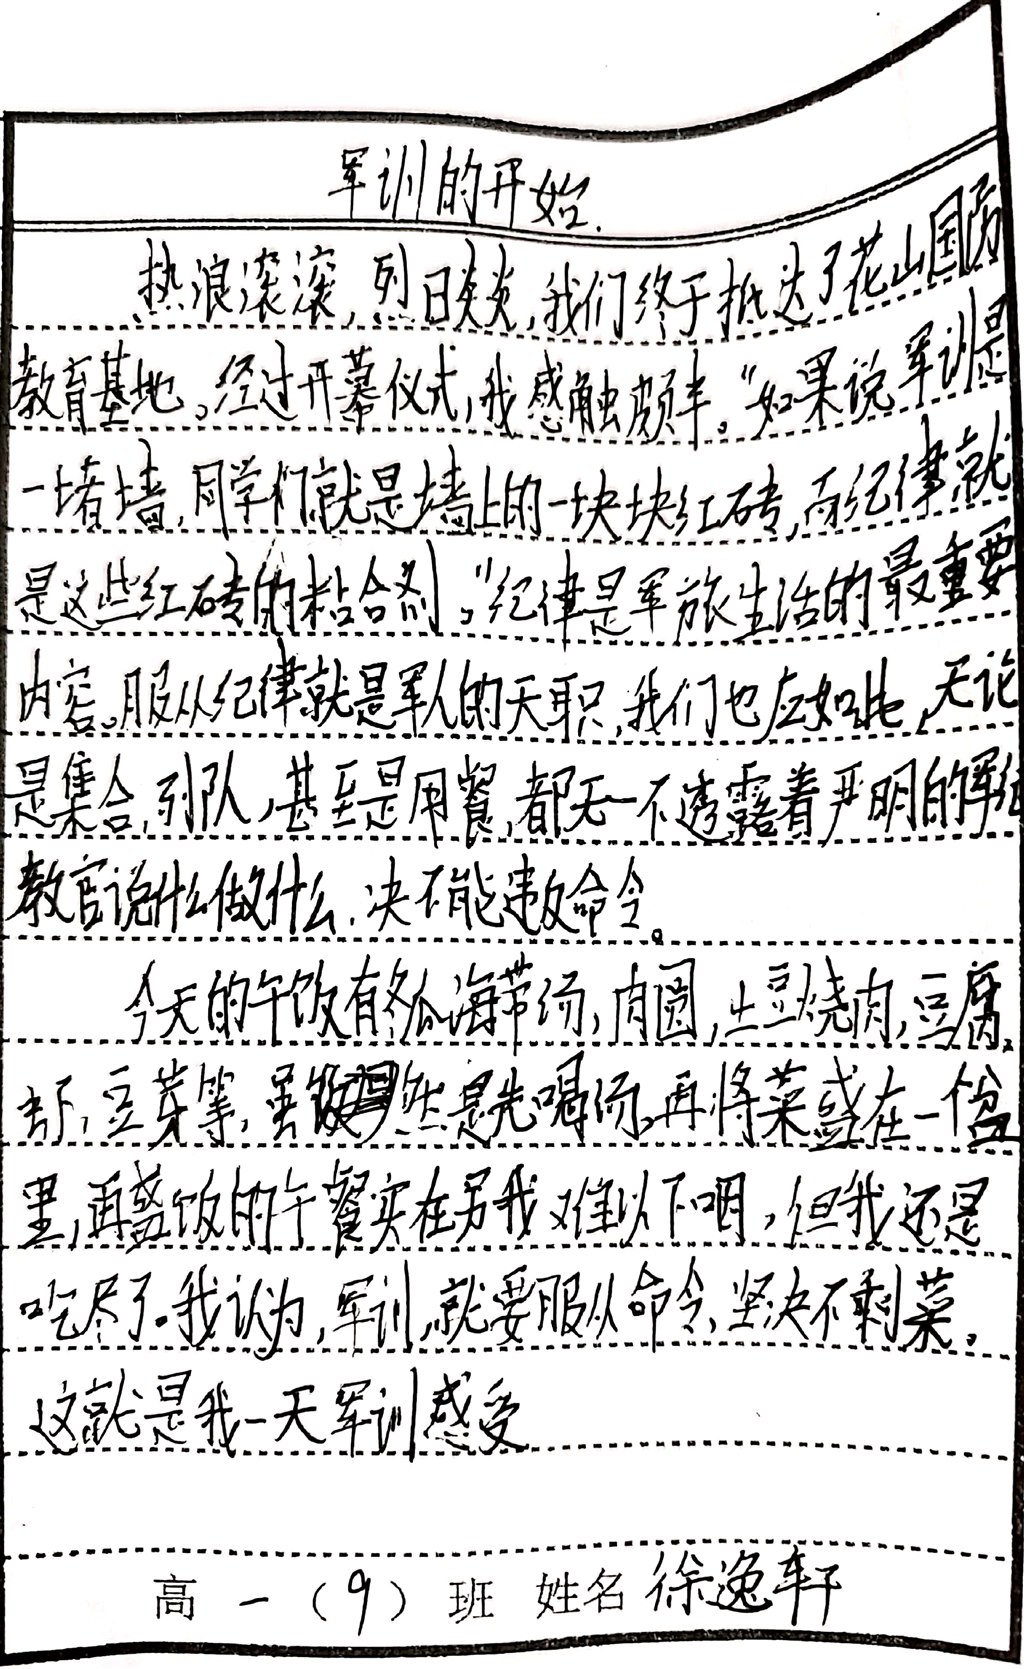 军训的开始.
热浪滚滚,烈日炎炎,我们终于抵达了花山国防
教育基地。经过开幕仪式,我感触颇丰。“如果说军训是
一堵墙,同学们就是墙上的一块块红砖,而纪律就
是这些红砖的粘合剂。”纪律是军旅生活的最重要
内容。服从纪律就是军人的天职,我们也应如此,无论
是集合,列队,甚至是用餐,都无一不透露着严明的军纪
教官说什么做什么,决不能违反命令。
今天的午饭有冬瓜海带汤,肉圆,土豆烧肉,豆腐,
豆芽等,虽然是先喝汤,再将菜盛在一个盆
里,再盛饭的午餐实在另我难以下咽,但我还是
吃尽了。我认为,军训,就要服从命令,坚决不剩菜。
这就是我一天军训感受
高一(9)班 姓名 徐逸轩